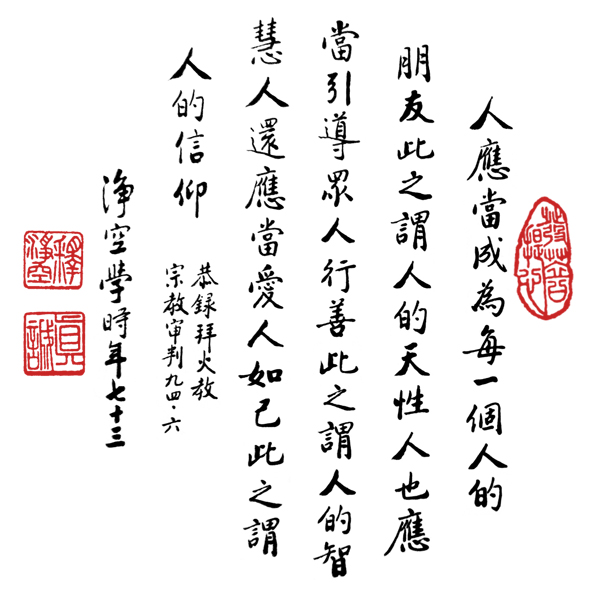 人應當成為每一個人的
朋友此之謂人的天性人也應
當引導眾人行善此之謂人的智
慧人還應當愛人如己此之謂
人的信仰
恭錄拜火教
宗教审判九四·六
淨空學時年七十三
釋淨空
真誠
發菩提心